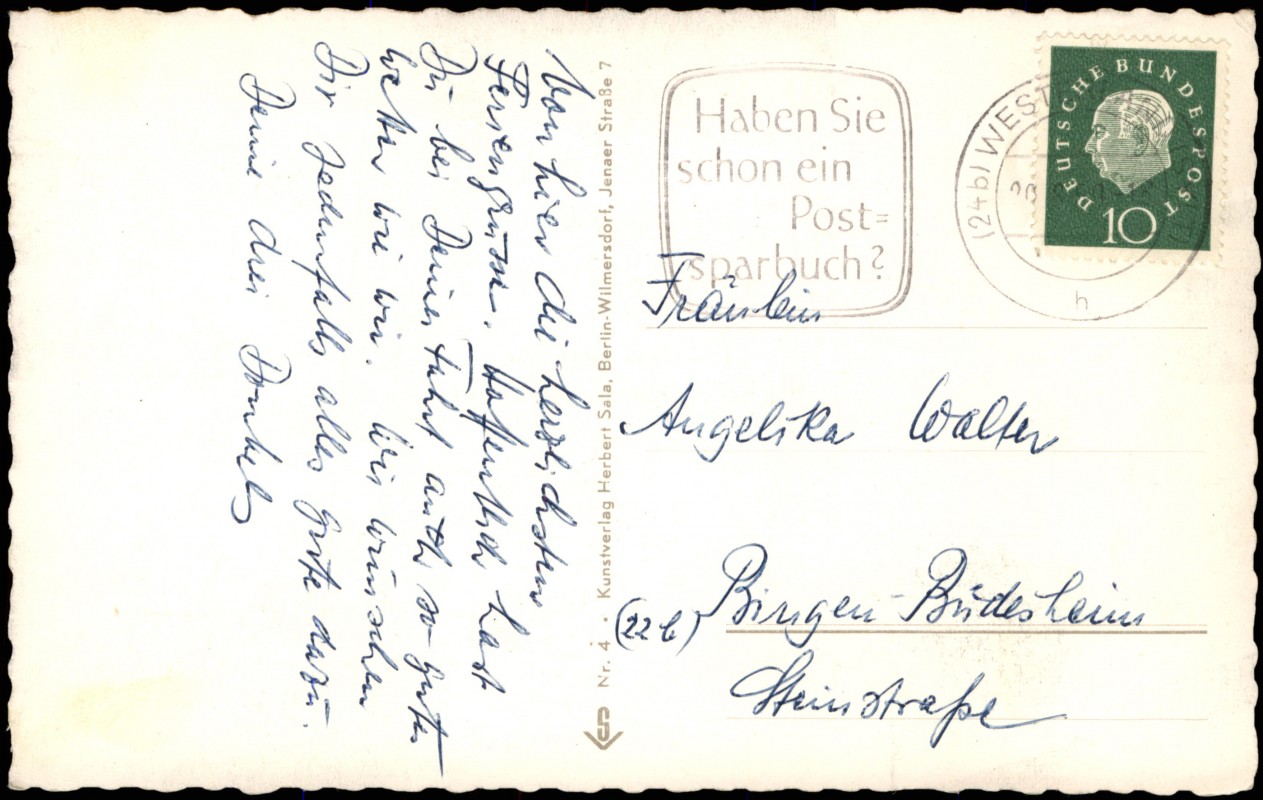 Von hier die herzlichsten
Feriengrüsse. Hoffentlich hast
Du bei Deiner Fahrt auch so gutes
Wetter wie wir. Wir wünschen
Dir jedenfalls alles gute dazu.
Deine drei
Nr. 4 · Kunstverlag Herbert Sala, Berlin-Wilmersdorf, Jenaer Straße 7
Haben Sie
schon ein
Post=
sparbuch?
(24b) WEST
h
DEUTSCHE BUNDESPOST
10
Fräulein
Angelika Walter
(22b) Bingen-Büdesheim
Steinstraße